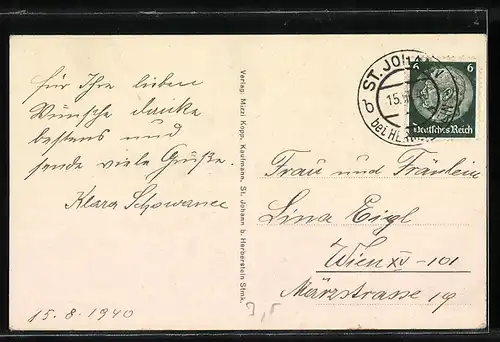 für Ihre lieben
Wünsche danke
bestens und
sende viele Grüße.
Klara Schowanec
15.8.1940
Verlag: Mizzi Kopp, Kaufmann, St. Johann b. Herberstein Stmk.
ST. JOHANN
b
15.
bei HER
6 6
Deutsches Reich
Frau und Fräulein
Lina Eigl
Wien XV - 101
Märzstrasse 19